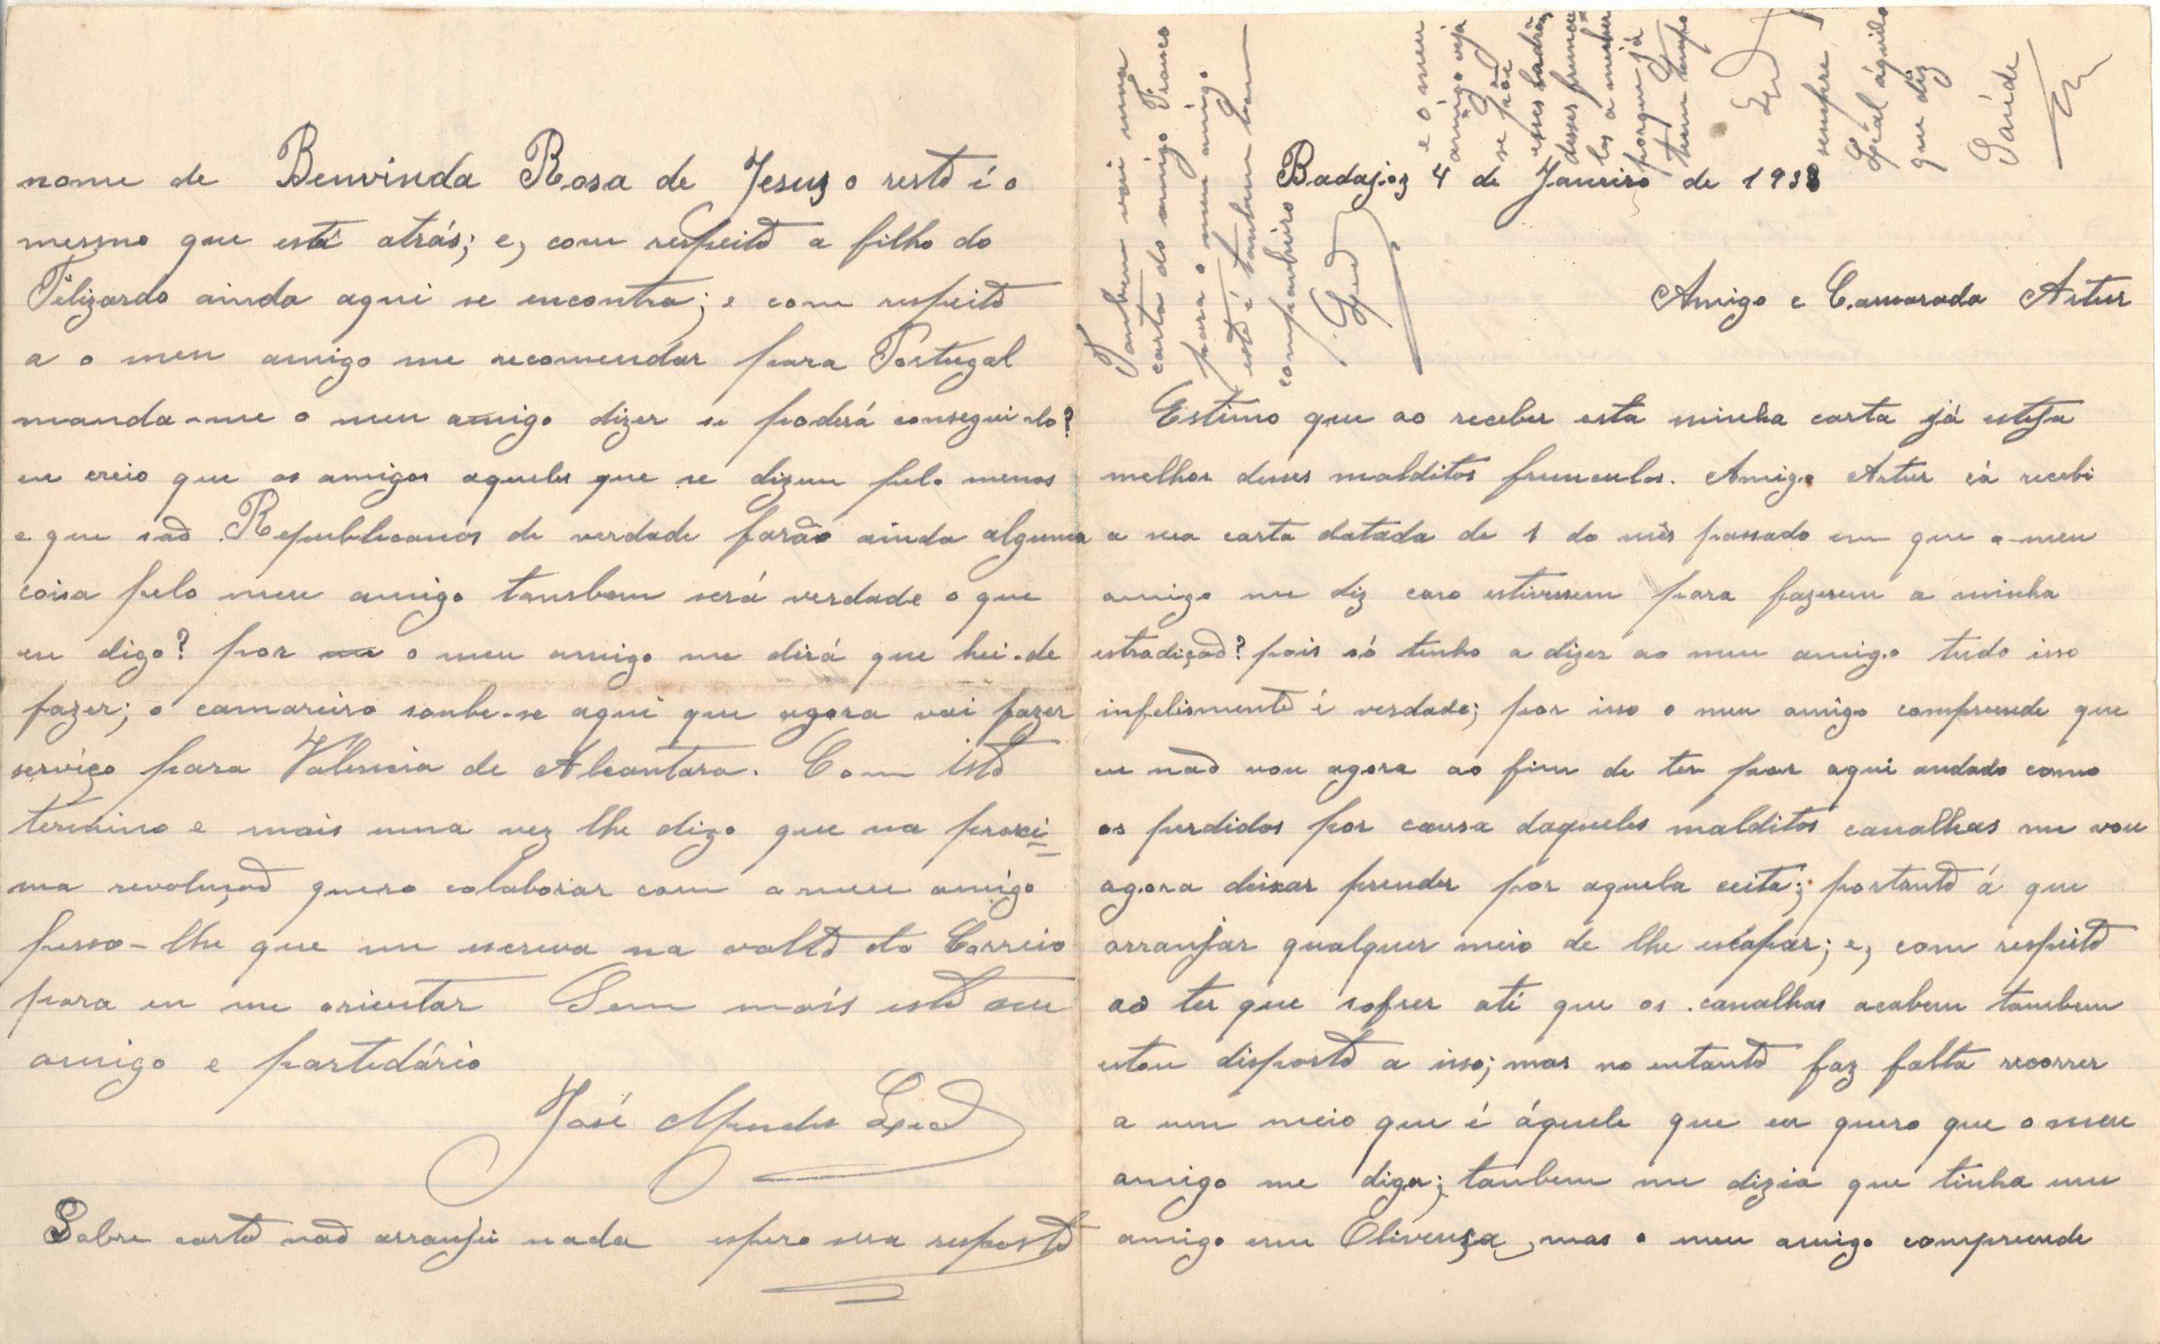 Badajoz 4 de Janeiro de 1938
Amigo e Camarada Artur
Estimo que ao receber esta minha carta já esteja
melhor desses malditos frunculos. Amigo Artur cá recebi
a sua carta datada de 1 do mês passado em que o meu
amigo me diz caso estivessem para fazerem a minha
estradiçaõ? pois só tenho a dizer ao meu amigo tudo isso
infelismente é verdade; por isso o meu amigo compreende que
eu naõ vou agora ao fim de ter por aqui andado como
os perdidos por causa daqueles malditos canalhas me vou
agora deixar prender por aquela seita; portanto á que
arranjar qualquer meio de lhe escapar; e, com respeito
ao ter que sofrer até que os canalhas acabem tambem
estou disposto a isso; mas no entanto faz falta recorrer
a um meio que é áquele que eu quero que o meu
amigo me diga; tambem me dizia que tinha um
amigo em Olivença, mas o meu amigo compreende
nome de Benvinda Rosa de Jesus o resto é o
mesmo que está atrás; e, com respeito a filho do
Filizardo ainda aqui se encontra; e com respeito
a o meu amigo me recomendar para Portugal
manda-me o meu amigo dizer se poderá consegui-lo?
eu creio que os amigos aqueles que se dizem pelo menos
e que saõ Republicanos de verdade farão ainda alguma
coisa pelo meu amigo tambem será verdade o que
eu digo? por o meu amigo me dirá que hei-de
fazer; o camareiro soube-se aqui que agora vai fazer
serviço para Valencia de Alcantara. Com isto
termino e mais uma vez lhe digo que na proxi-
ma revoluçaõ quero colaborar com o meu amigo
pesso-lhe que me escreva na volta do Correio
para eu me orientar Sem mais este seu
amigo e partidário
José Mendes Leal
Sobre carta naõ arranjei nada espero sua resposta
Tambem vai uma
carta do amigo Franseco
para o meu amigo
este é tambem bom
companheiro
Leal
e o meu
amigo veja
se põe
esses ladrões
desses fruncu
los a mexer
porque já
teem tempo
sempre
Leal áquilo
que diz
Saúde